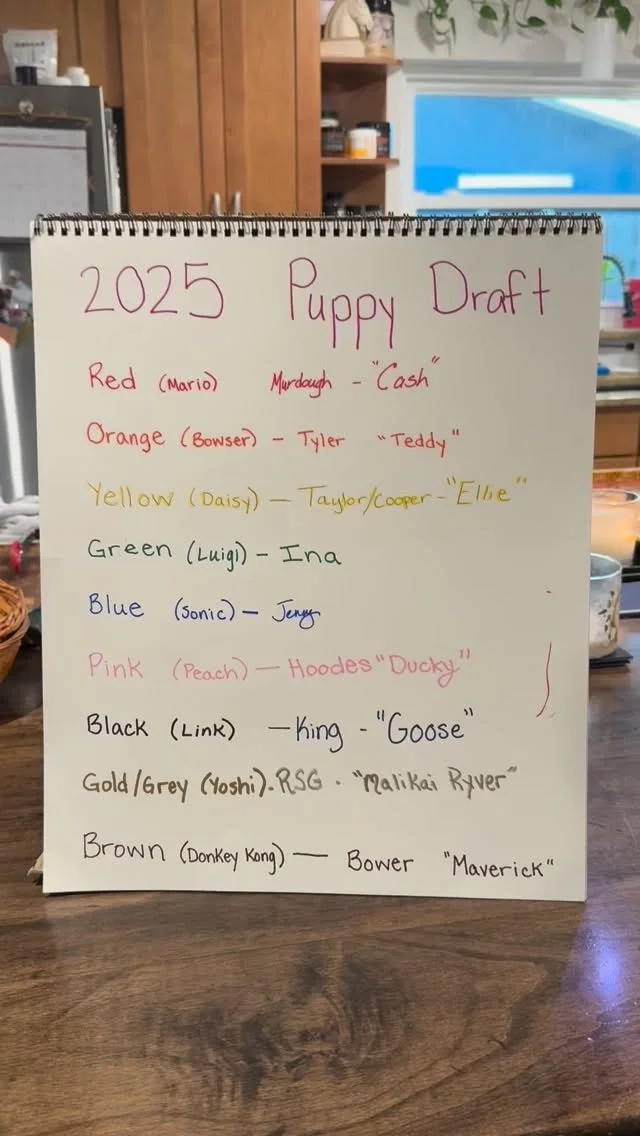 2025 Puppy Draft
Red (Mario) Murdough - "Cash"
Orange (Bowser) - Tyler "Teddy"
Yellow (Daisy) - Taylor/Cooper - "Ellie"
Green (Luigi) - Ina
Blue (Sonic) - Jerry
Pink (Peach) - Hoodes "Ducky"
Black (Link) - King - "Goose"
Gold/Grey (Yoshi). RSG . "Malikai Ryver"
Brown (Donkey Kong) - Bower "Maverick"